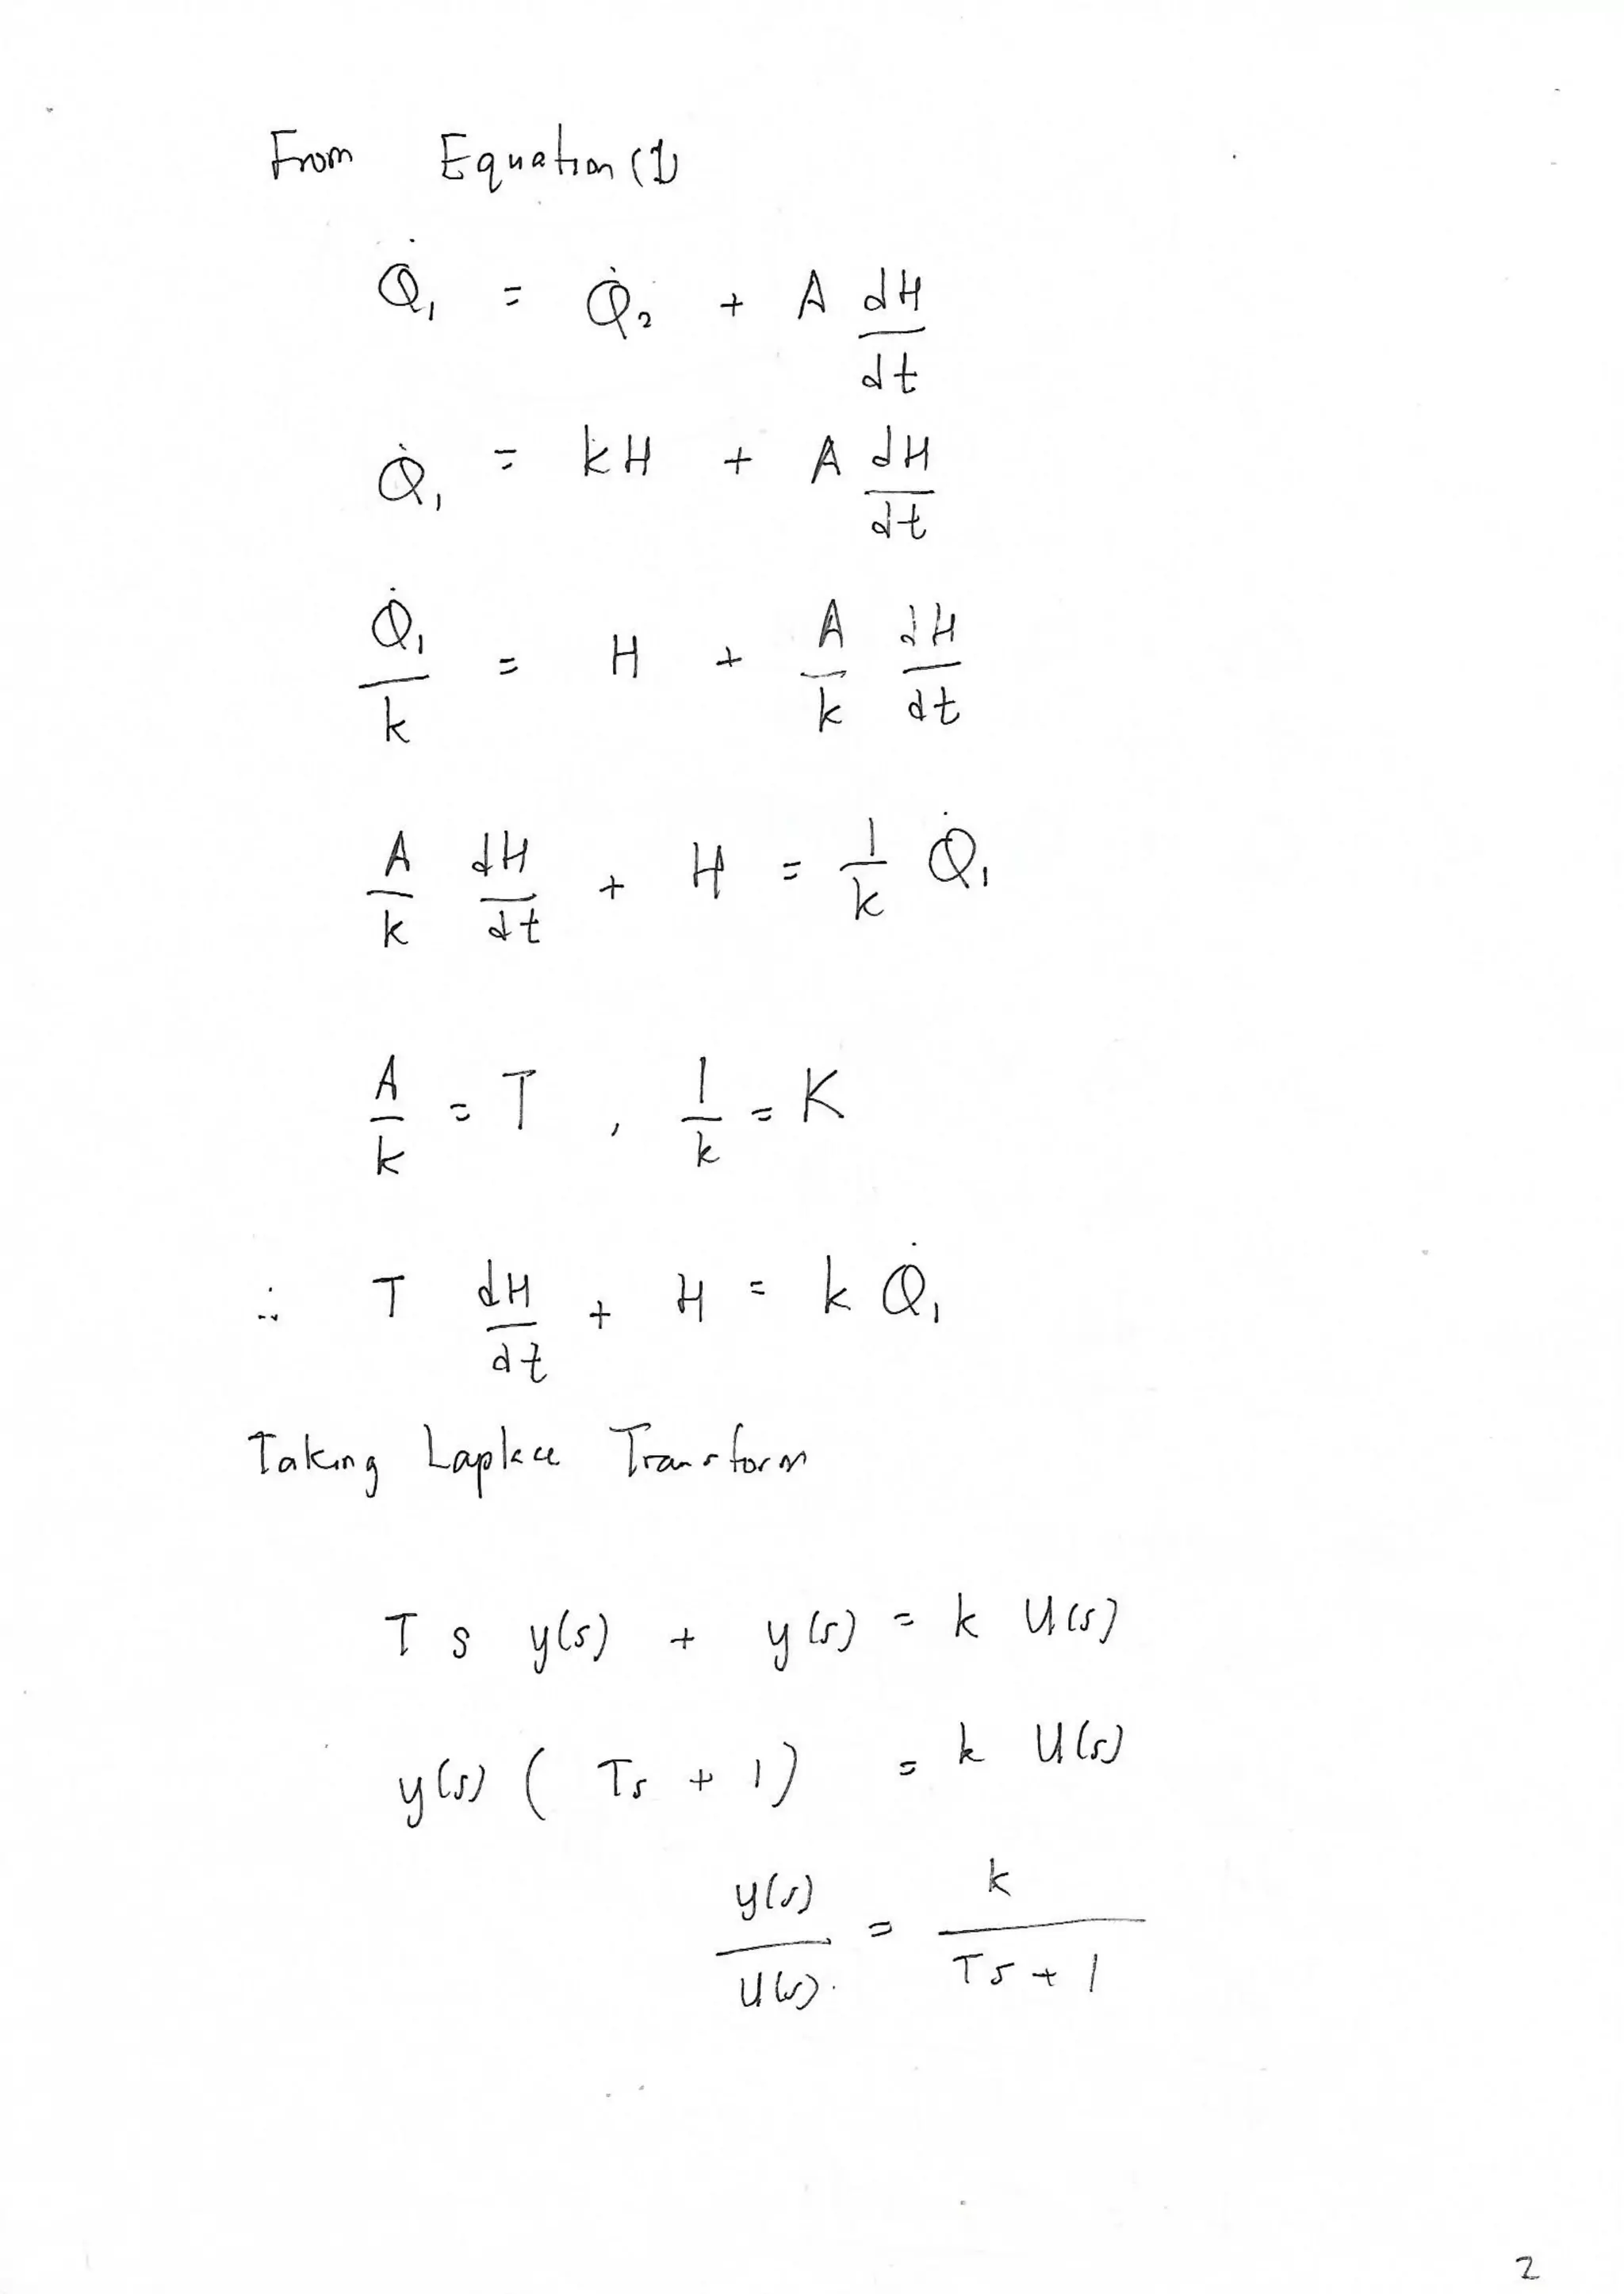 From Equation (1)
Q̇₁ = Q̇₂ + A dH/dt
Q̇₁ = kH + A dH/dt
Q̇₁/k = H + A/k dH/dt
A/k dH/dt + H = 1/k Q̇₁
A/k = T , 1/k = K
∴ T dH/dt + H = k Q̇₁
Taking Laplace Transform
T s y(s) + y(s) = k U(s)
y(s) ( Ts + 1) = k U(s)
y(s)/U(s) = k/Ts + 1
2